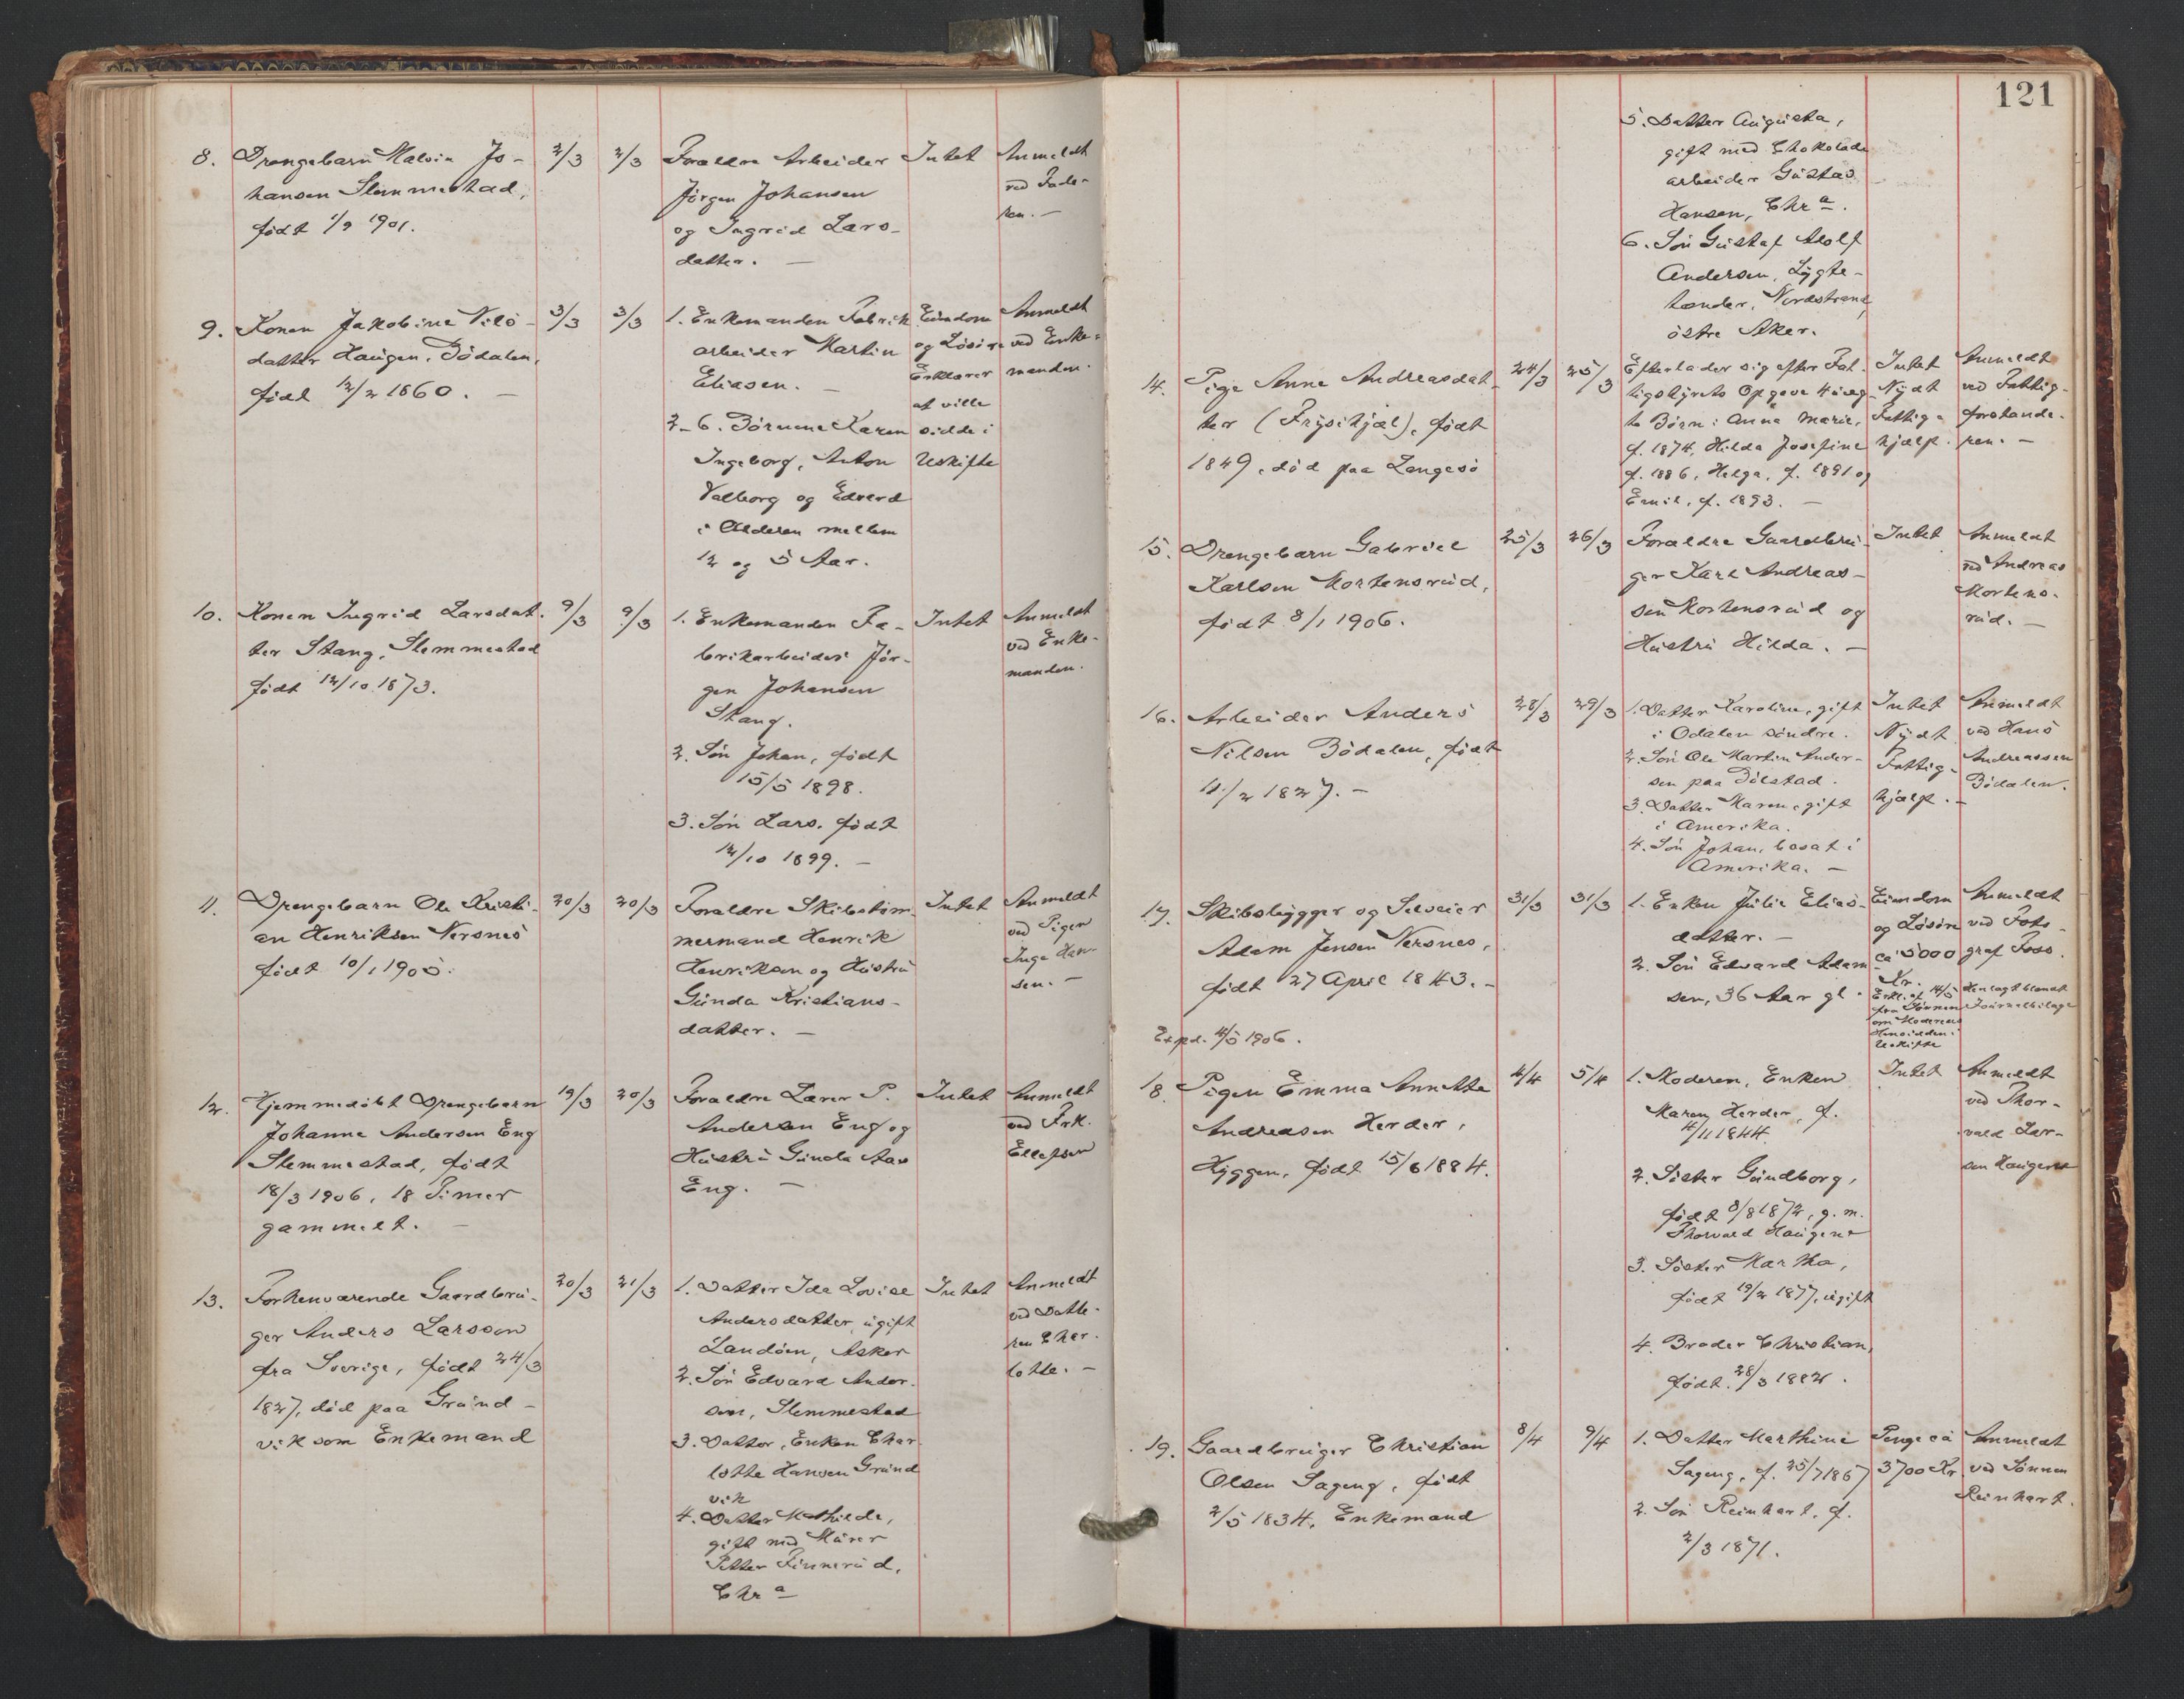 121
8. Drengebarn Malvin Jo-
hansen Slemmestad,
født 1/9 1901.
2/3
2/3
Forældre Arbeider
Jörgen Johansen
og Ingrid Lars-
datter. —
Intet
Anmeldt
ved Fade-
ren. —
9. Konen Jakobine Nils-
datter Haugen, Bödalen,
født 12/2 1860. —
3/3
3/3
1. Enkemanden Fabrik
arbeider Martin
Eliasen. —
2-6. Börnene Karen
Ingeborg, Anton
Valborg og Edvard
i Alderen mellem
12 og 5 Aar.
Eiendom
og Lösöre
Erklærer
at ville
sidde i
Uskifte
Anmeldt
ved Enke-
manden.
10. Konen Ingrid Larsdat-
ter Stang, Slemmestad
født 12/10 1873.
9/3
9/3
1. Enkemanden Fa-
brikarbeider Jör-
gen Johansen
Stang.
2. Sön Johan, født
15/5 1898.
3. Sön Lars, født
12/10 1899. —
Intet
Anmeldt
ved Enke-
manden.
11. Drengebarn Ole Kristi-
an Henriksen Nersnes
født 10/1 1905.
20/3
20/3
Forældre Skibstöm-
mermand Henrik
Henriksen og Hustru
Gunda Kristians-
datter. —
Intet
Anmeldt
ved Pigen
Inga Han-
sen. —
12. Hjemmedöbt Drengebarn
Johanne Andersen Eng
Slemmestad, født
18/3 1906, 18 Timer
gammelt. —
19/3
20/3
Forældre Lærer P.
Andersen Eng og
Hustru Gunda Aas
Eng. —
Intet
Anmeldt
ved Frk.
Ellefsen
13. Forhenværende Gaardbru-
ger Anders Larsson
fra Sverige, født 24/3
1827, död paa Grund-
vik som Enkemand
20/3
21/3
1. Datter Ida Lovise
Andersdatter, ugift
Landöen, Asker
2. Sön Edvard Ander-
sen, Slemmestad
3. Datter, Enken Char-
lotte Hansen Grund
vik
4. Datter Mathilde,
gift med Murer
Petter Finnerud,
Chra
Intet
Anmeldt
ved Datte-
ren Char-
lotte. —
5. Datter Augusta,
gift med Chokolade
arbeider Gustav
Hansen, Chra.
6. Sön Gustaf Adolf
Andersen, Lygte-
tænder, Nordstrand,
östre Aker.
14. Pige Anne Andreasdat-
ter (Frysihjæl), født
1849, död paa Langesö
24/3
25/3
Efterlader sig efter Fat-
tigstyrets Opgave 4 uæg-
te Börn: Anna Marie,
f. 1874, Hilda Josefine
f. 1886, Helga, f. 1891 og
Emil, f. 1893. —
Intet
Nydt
Fattig-
hjælp.
Anmeldt
ved Fattig-
forstande-
ren. —
15. Drengebarn Gabriel
Karlsen Mortensrud,
født 8/1 1906.
25/3
26/3
Forældre Gaardbru-
ger Karl Andreas-
sen Mortensrud og
Hustru Hilda. —
Intet
Anmeldt
ved Andreas
Mortens-
rud. —
16. Arbeider Anders
Nilsen Bödalen, født
11/2 1827. —
28/3
29/3
1. Datter Karoline, gift
i Odalen söndre.
2. Sön Ole Martin Ander-
sen paa Bölstad.
3. Datter Maren, gift
i Amerika.
4. Sön Johan, bosat i
Amerika. —
Intet
Nydt
Fattig-
hjælp. —
Anmeldt
ved Hans
Andreassen
Bödalen.
17. Skibsbygger og Selveier
Adam Jensen Nersnes,
født 27 April 1843. —
Expd. 4/5 1906.
31/3
31/3
1. Enken Julie Elias-
datter. —
2. Sön Edvard Adam
sen, 36 Aar gl.
Eiendom
og Lösöre
ca 5000
Kr.
Erkl. af 14/5
fra Sönnen
om Moderens
Hensidden i
Uskifte
Anmeldt
ved Foto-
graf Foss.
Henlagt blandt
Journalbilage
18. Pigen Emma Annette
Andreasen Herder,
Hyggen, født 15/6 1884.
4/4
5/4
1. Moderen, Enken
Maren Herder, f.
4/11 1844.
2. Söster Gundborg,
født 8/8 1872, g. m.
Thorvald Haugene
3. Söster Martha,
født 19/2 1877, ugift
4. Broder Christian,
født 28/3 1882.
Intet
Anmeldt
ved Thor-
vald Lar-
sen Haugene
19. Gaardbruger Christian
Olsen Sageng, født
2/5 1834, Enkemand
8/4
9/4
1. Datter Marthine
Sageng, f. 25/7 1867
2. Sön Reinhart, f.
2/3 1871.
Penge ca
3700 Kr.
Anmeldt
ved Sönnen
Reinhart.